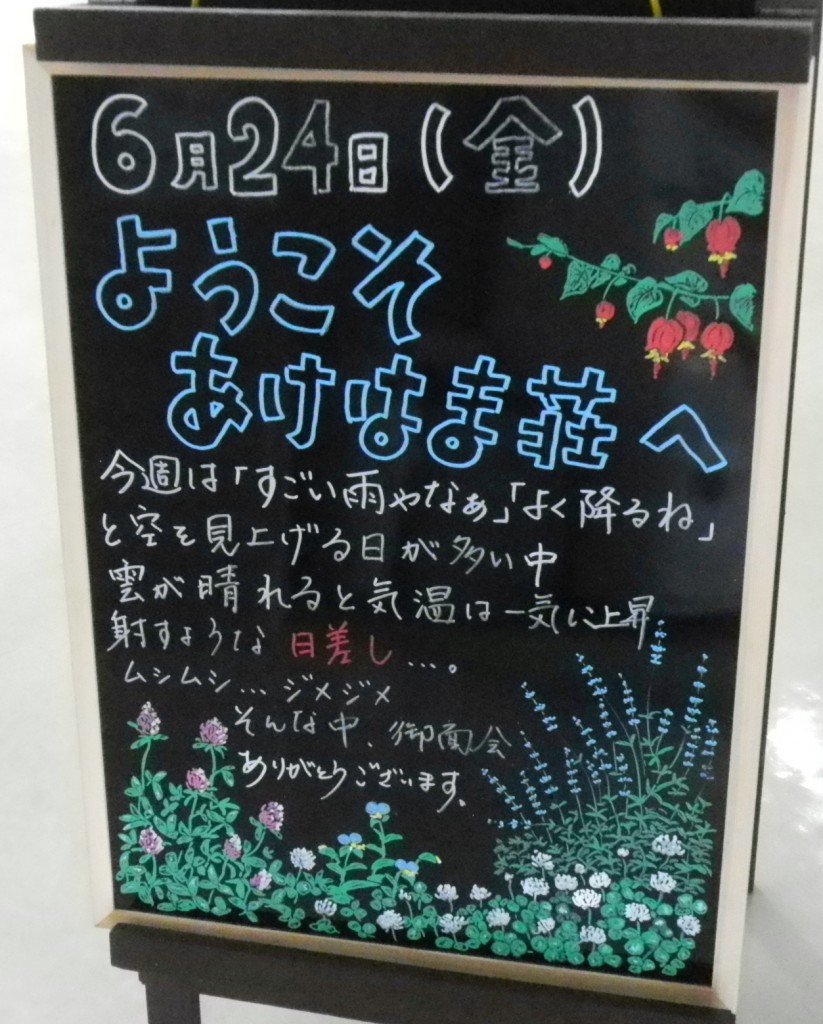 6月24日(金)
ようこそ
あけはま荘へ
今週は「すごい雨やなぁ」「よく降るね」
と空を見上げる日が多い中
雲が晴れると気温は一気に上昇
射すような日差し…。
ムシムシ…ジメジメ
そんな中、御面会
ありがとうございます。